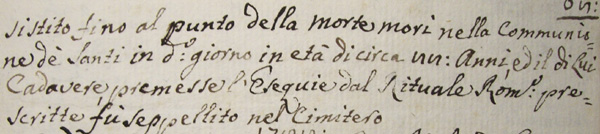 sistito fino al punto della morte morì nella Communio=
ne dè Santi in d:º giorno in età di circa un: Anni, ed il di Lui
Cadavere premesse l'Esequie dal Rituale Rom:º pre=
scritte fù seppellito nel Cimitero